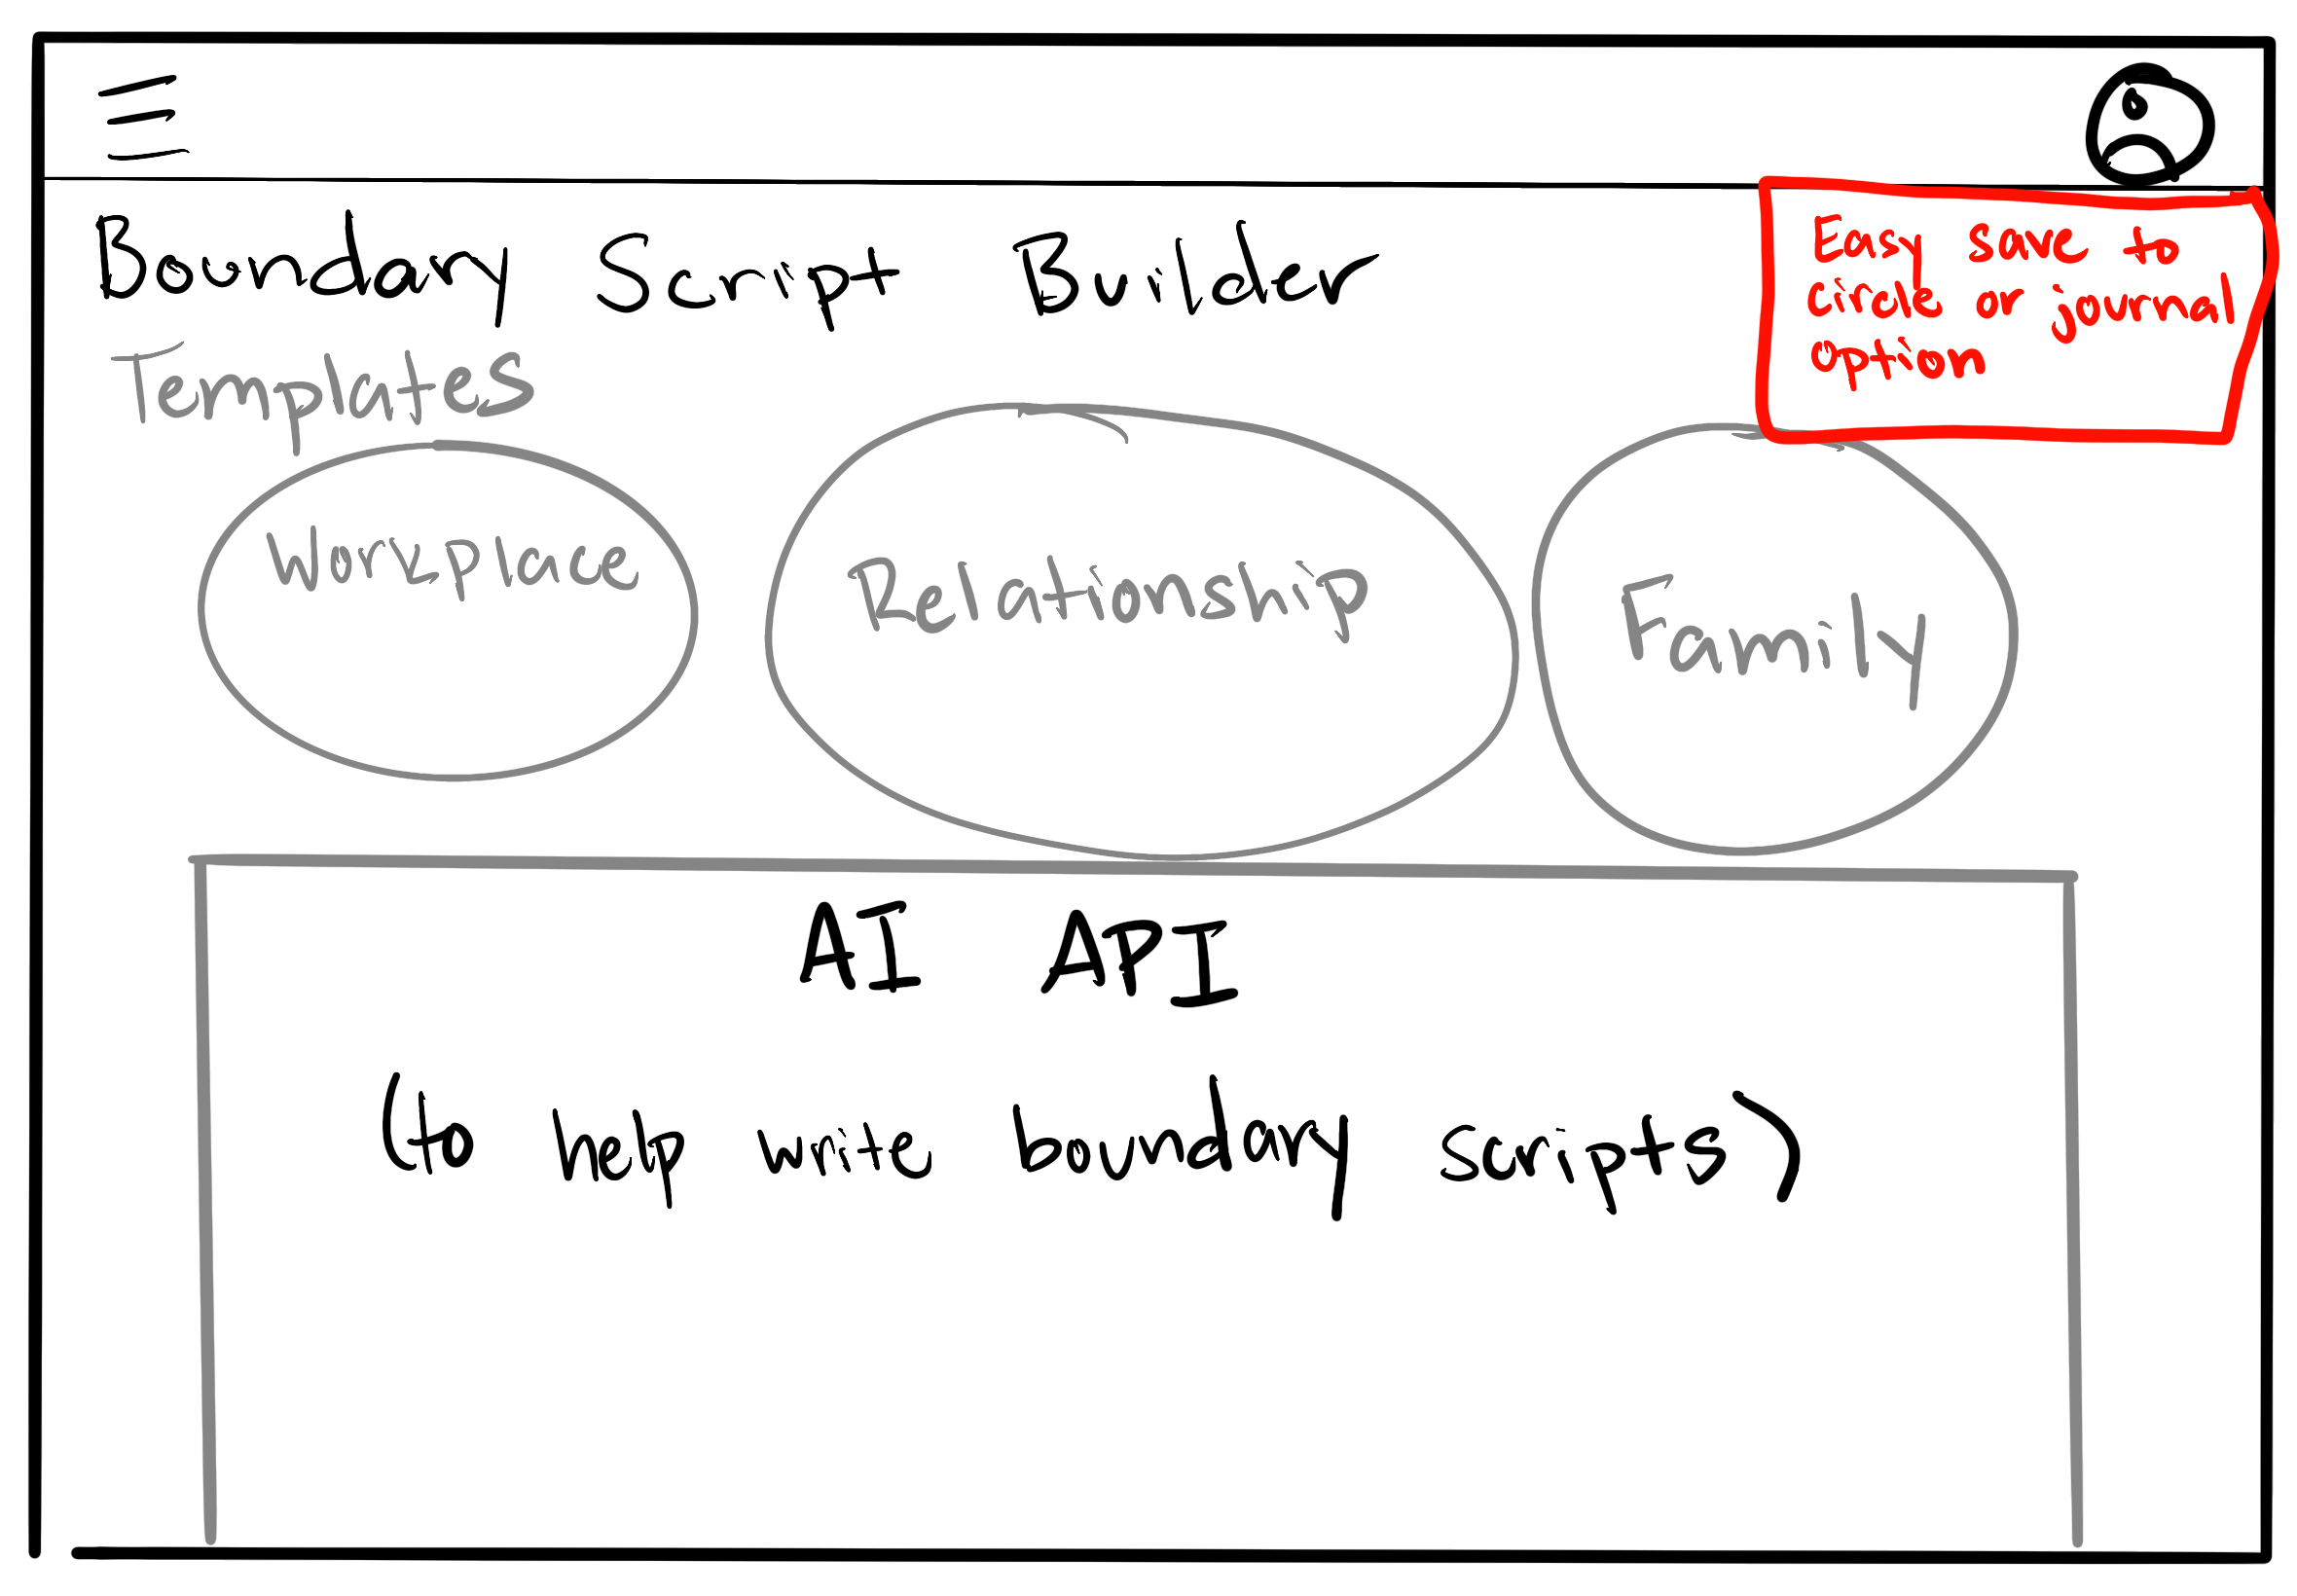 Boundary Script Builder
Easy save to
circle or journal
option
Templates
Workplace
Relationship
Family
AI API
(to help write boundary scripts)